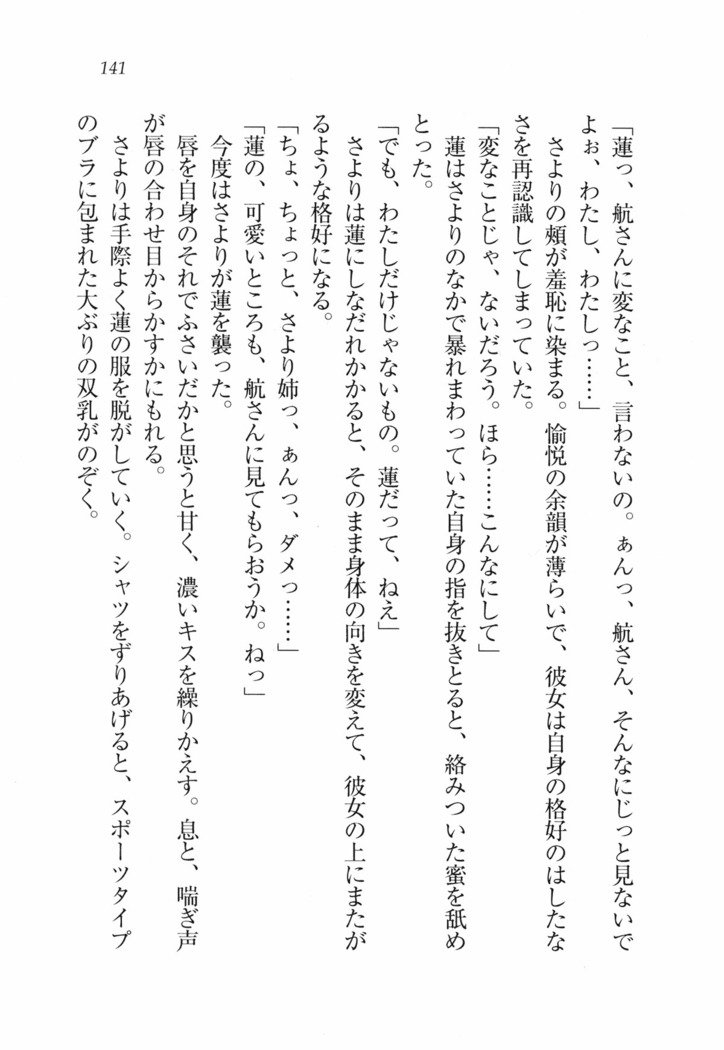 141
「蓮っ、航さんに変なこと、言わないの。ぁんっ、航さん、そんなにじっと見ないで
よぉ、わたし、わたしっ……」
さよりの頬が羞恥に染まる。愉悦の余韻が薄らいで、彼女は自身の格好のはしたな
さを再認識してしまっていた。
「変なことじゃ、ないだろう。ほら……こんなにして」
蓮はさよりのなかで暴れまわっていた自身の指を抜きとると、絡みついた蜜を舐め
とった。
「でも、わたしだけじゃないもの。蓮だって、ねえ」
さよりは蓮にしなだれかかると、そのまま身体の向きを変えて、彼女の上にまたが
るような格好になる。
「ちょ、ちょっと、さより姉っ、ぁんっ、ダメっ……」
「蓮の、可愛いところも、航さんに見てもらおうか。ねっ」
今度はさよりが蓮を襲った。
唇を自身のそれでふさいだかと思うと甘く、濃いキスを繰りかえす。息と、喘ぎ声
が唇の合わせ目からかすかにもれる。
さよりは手際よく蓮の服を脱がしていく。シャツをずりあげると、スポーツタイプ
のブラに包まれた大ぶりの双乳がのぞく。